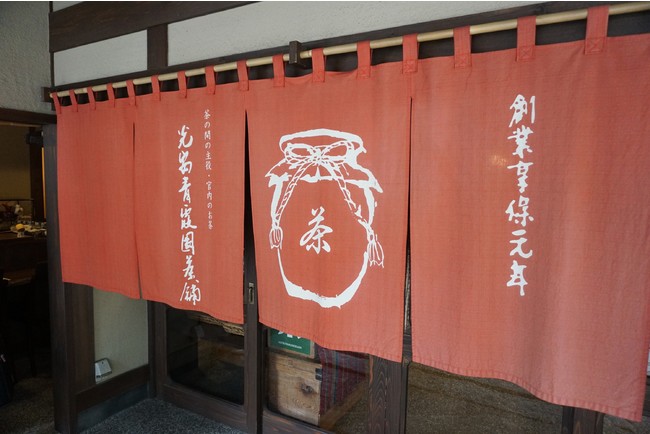 創業享保元年
茶
茶の間の主役・宮内のお茶
光安青霞園茶舗
茶